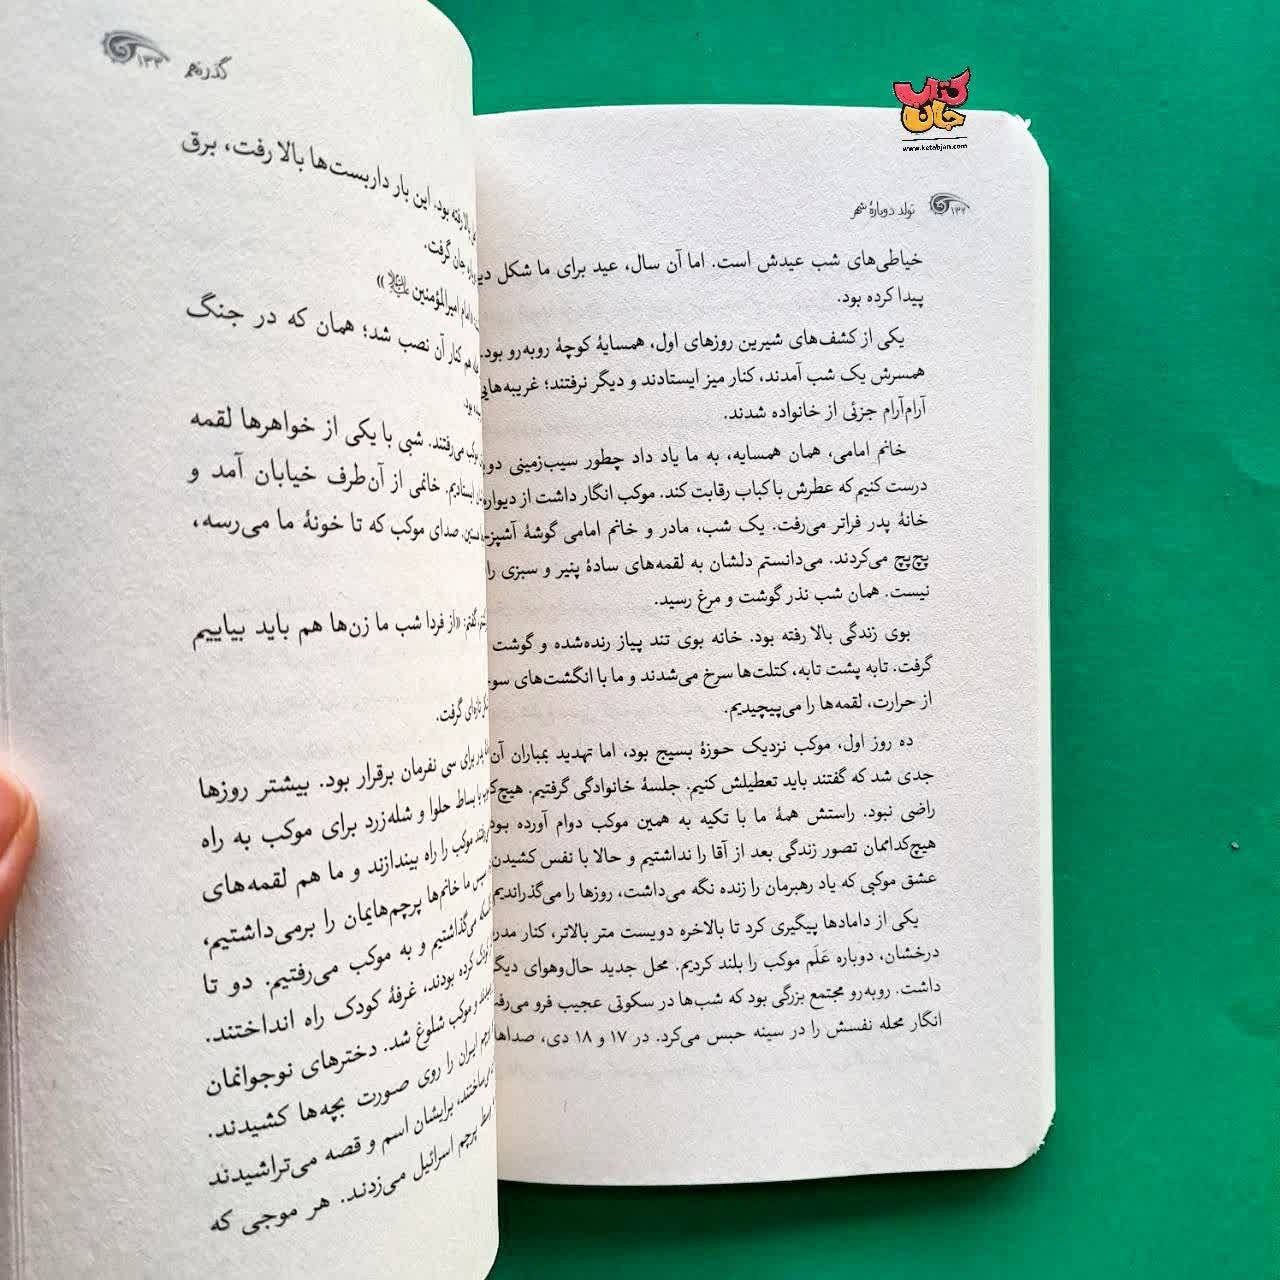 کتاب جان
www.ketabjan.com
۱۳۲ تولد دوبارهٔ شهر
خیاطی‌های شب عیدش است. اما آن سال، عید برای ما شکل
پیدا کرده بود.
یکی از کشف‌های شیرین روزهای اول، همسایهٔ کوچهٔ روبه‌رو بود.
همسرش یک شب آمدند، کنار میز ایستادند و دیگر نرفتند؛ غریبه‌هایی
آرام‌آرام جزئی از خانواده شدند.
خانم امامی، همان همسایه، به ما یاد داد چطور سیب‌زمینی
درست کنیم که عطرش با کباب رقابت کند. موکب انگار داشت از
خانهٔ پدر فراتر می‌رفت. یک شب، مادر و خانم امامی گوشهٔ
پچ‌پچ می‌کردند. می‌دانستم دلشان به لقمه‌های سادهٔ پنیر و سبزی
نیست. همان شب نذر گوشت و مرغ رسید.
بوی زندگی بالا رفته بود. خانه بوی تند پیاز رنده‌شده و گوشت
گرفت. تابه پشت تابه، کتلت‌ها سرخ می‌شدند و ما با انگشت‌های
از حرارت، لقمه‌ها را می‌پیچیدیم.
ده روز اول، موکب نزدیک حوزهٔ بسیج بود، اما تهدید بمباران آن
جدی شد که گفتند باید تعطیلش کنیم. جلسهٔ خانوادگی گرفتیم.
راضی نبود. راستش همهٔ ما با تکیه به همین موکب دوام آورده
هیچ‌کداممان تصور زندگی بعد از آقا را نداشتیم و حالا با نفس کشیدن
عشق موکبی که یاد رهبرمان را زنده نگه می‌داشت، روزها را می‌گذراندیم
یکی از دامادها پیگیری کرد تا بالاخره دویست متر بالاتر، کنار
درخشان، دوباره عَلَم موکب را بلند کردیم. محل جدید حال‌وهوای
داشت. روبه‌رو مجتمع بزرگی بود که شب‌ها در سکوتی عجیب فرو
انگار محله نفسش را در سینه حبس می‌کرد. در ۱۷ و ۱۸ دی،
۱۳۳
بالا رفته بود. این بار داربست‌ها بالا رفت، برق
جان گرفت.
امام امیرالمؤمنین »
هم کنار آن نصب شد؛ همان که در جنگ
بود.
موکب می‌رفتند. شبی با یکی از خواهرها لقمه
ایستادیم. خانمی از آن‌طرف خیابان آمد و
صدای موکب که تا خونهٔ ما می‌رسه،
گفتم: «از فردا شب ما زن‌ها هم باید بیاییم
تازه‌ای گرفت.
برای سی نفرمان برقرار بود. بیشتر روزها
با بساط حلوا و شله‌زرد برای موکب به راه
موکب را راه بیندازند و ما هم لقمه‌های
سپس ما خانم‌ها پرچم‌هایمان را برمی‌داشتیم،
می‌گذاشتیم و به موکب می‌رفتیم. دو تا
کرده بودند، غرفهٔ کودک راه انداختند.
و موکب شلوغ شد. دخترهای نوجوانمان
پرچم ایران را روی صورت بچه‌ها کشیدند.
می‌ساختند، برایشان اسم و قصه می‌تراشیدند
وسط پرچم اسرائیل می‌زدند. هر موجی که